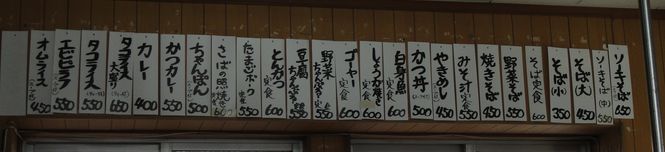 ソーキそば 650
ソーキそば (中) 550
そば(大) 450
そば(小) 350
そば定食 600
野菜そば 550
焼きそば 550
みそ汁定食 550
やきめし 450
かつ丼 500
白身魚定食 600
しょうが焼き定食 600
ゴーヤー定食 600
野菜ちゃんぷるー定食 550
豆腐ちゃんぷるー定食 550
とんかつ定食 600
たまごやき定食 550
さばの照焼き 600
ちゃんぽん 500
かつカレー 550
カレー 400
タコライス 大盛 650
タコライス 550
エビピラフ 550
オムライス 450